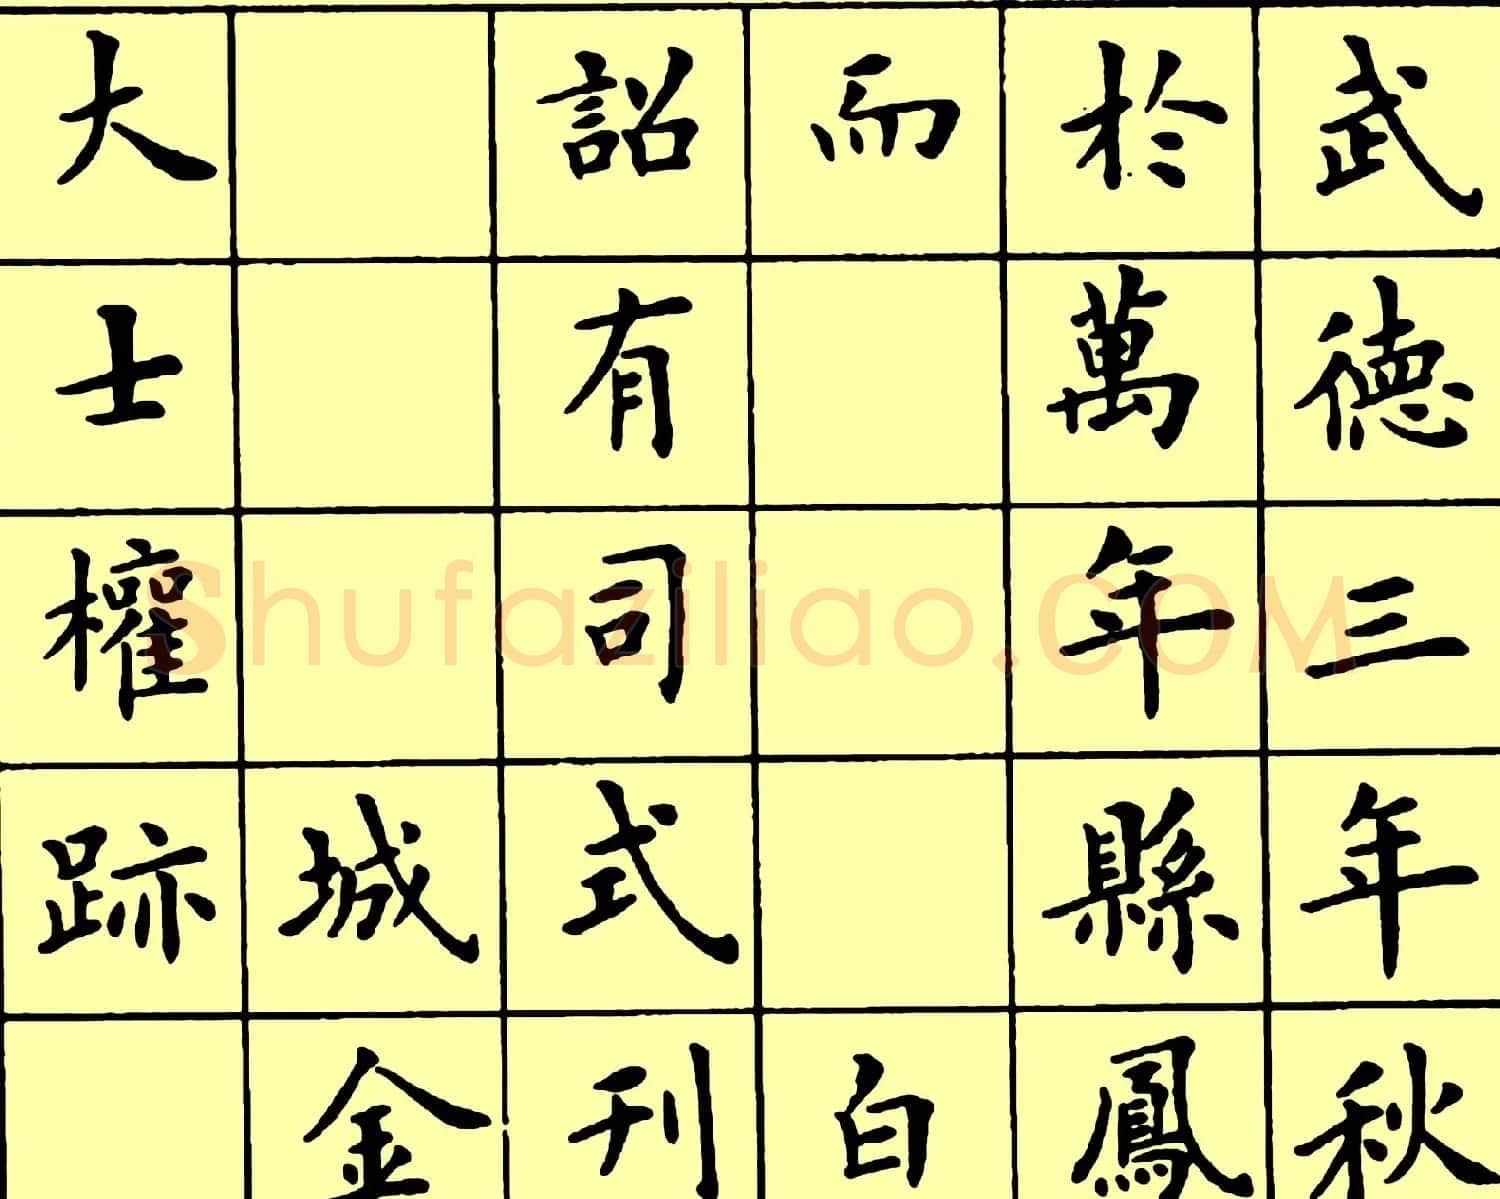 武德三年秋
於萬年縣鳳
而白
詔有司式刊
城金
大士權跡
Shufaziliao.COM